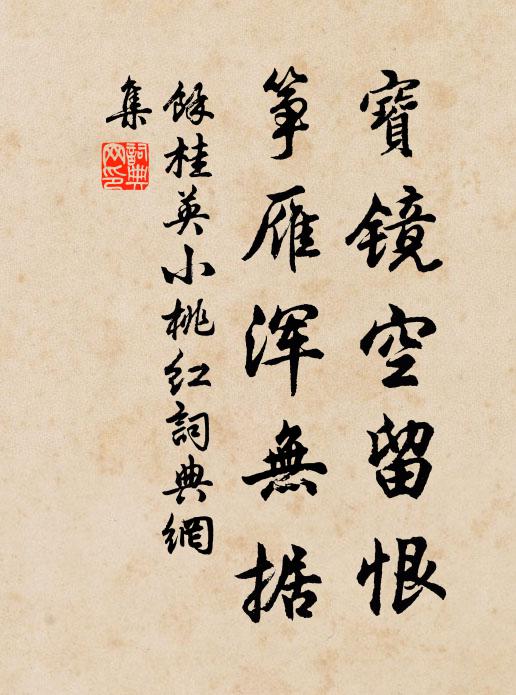 寶鏡空留恨
箏雁渾無据
餘桂英小桃红詞典網
集
詞典
网印